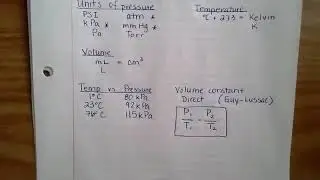 Units of pressure
PSI atm *
kPa * mmHg *
Pa Torr
Temperature
°C + 273 = Kelvin
K
Volume
mL = cm³
L
Temp vs Pressure
1°C 80 kPa
23°C 92 kPa
°C 115 kPa
Volume constant
Direct (Guy-Lussac)
P₁ = P₂
T₁ T₂